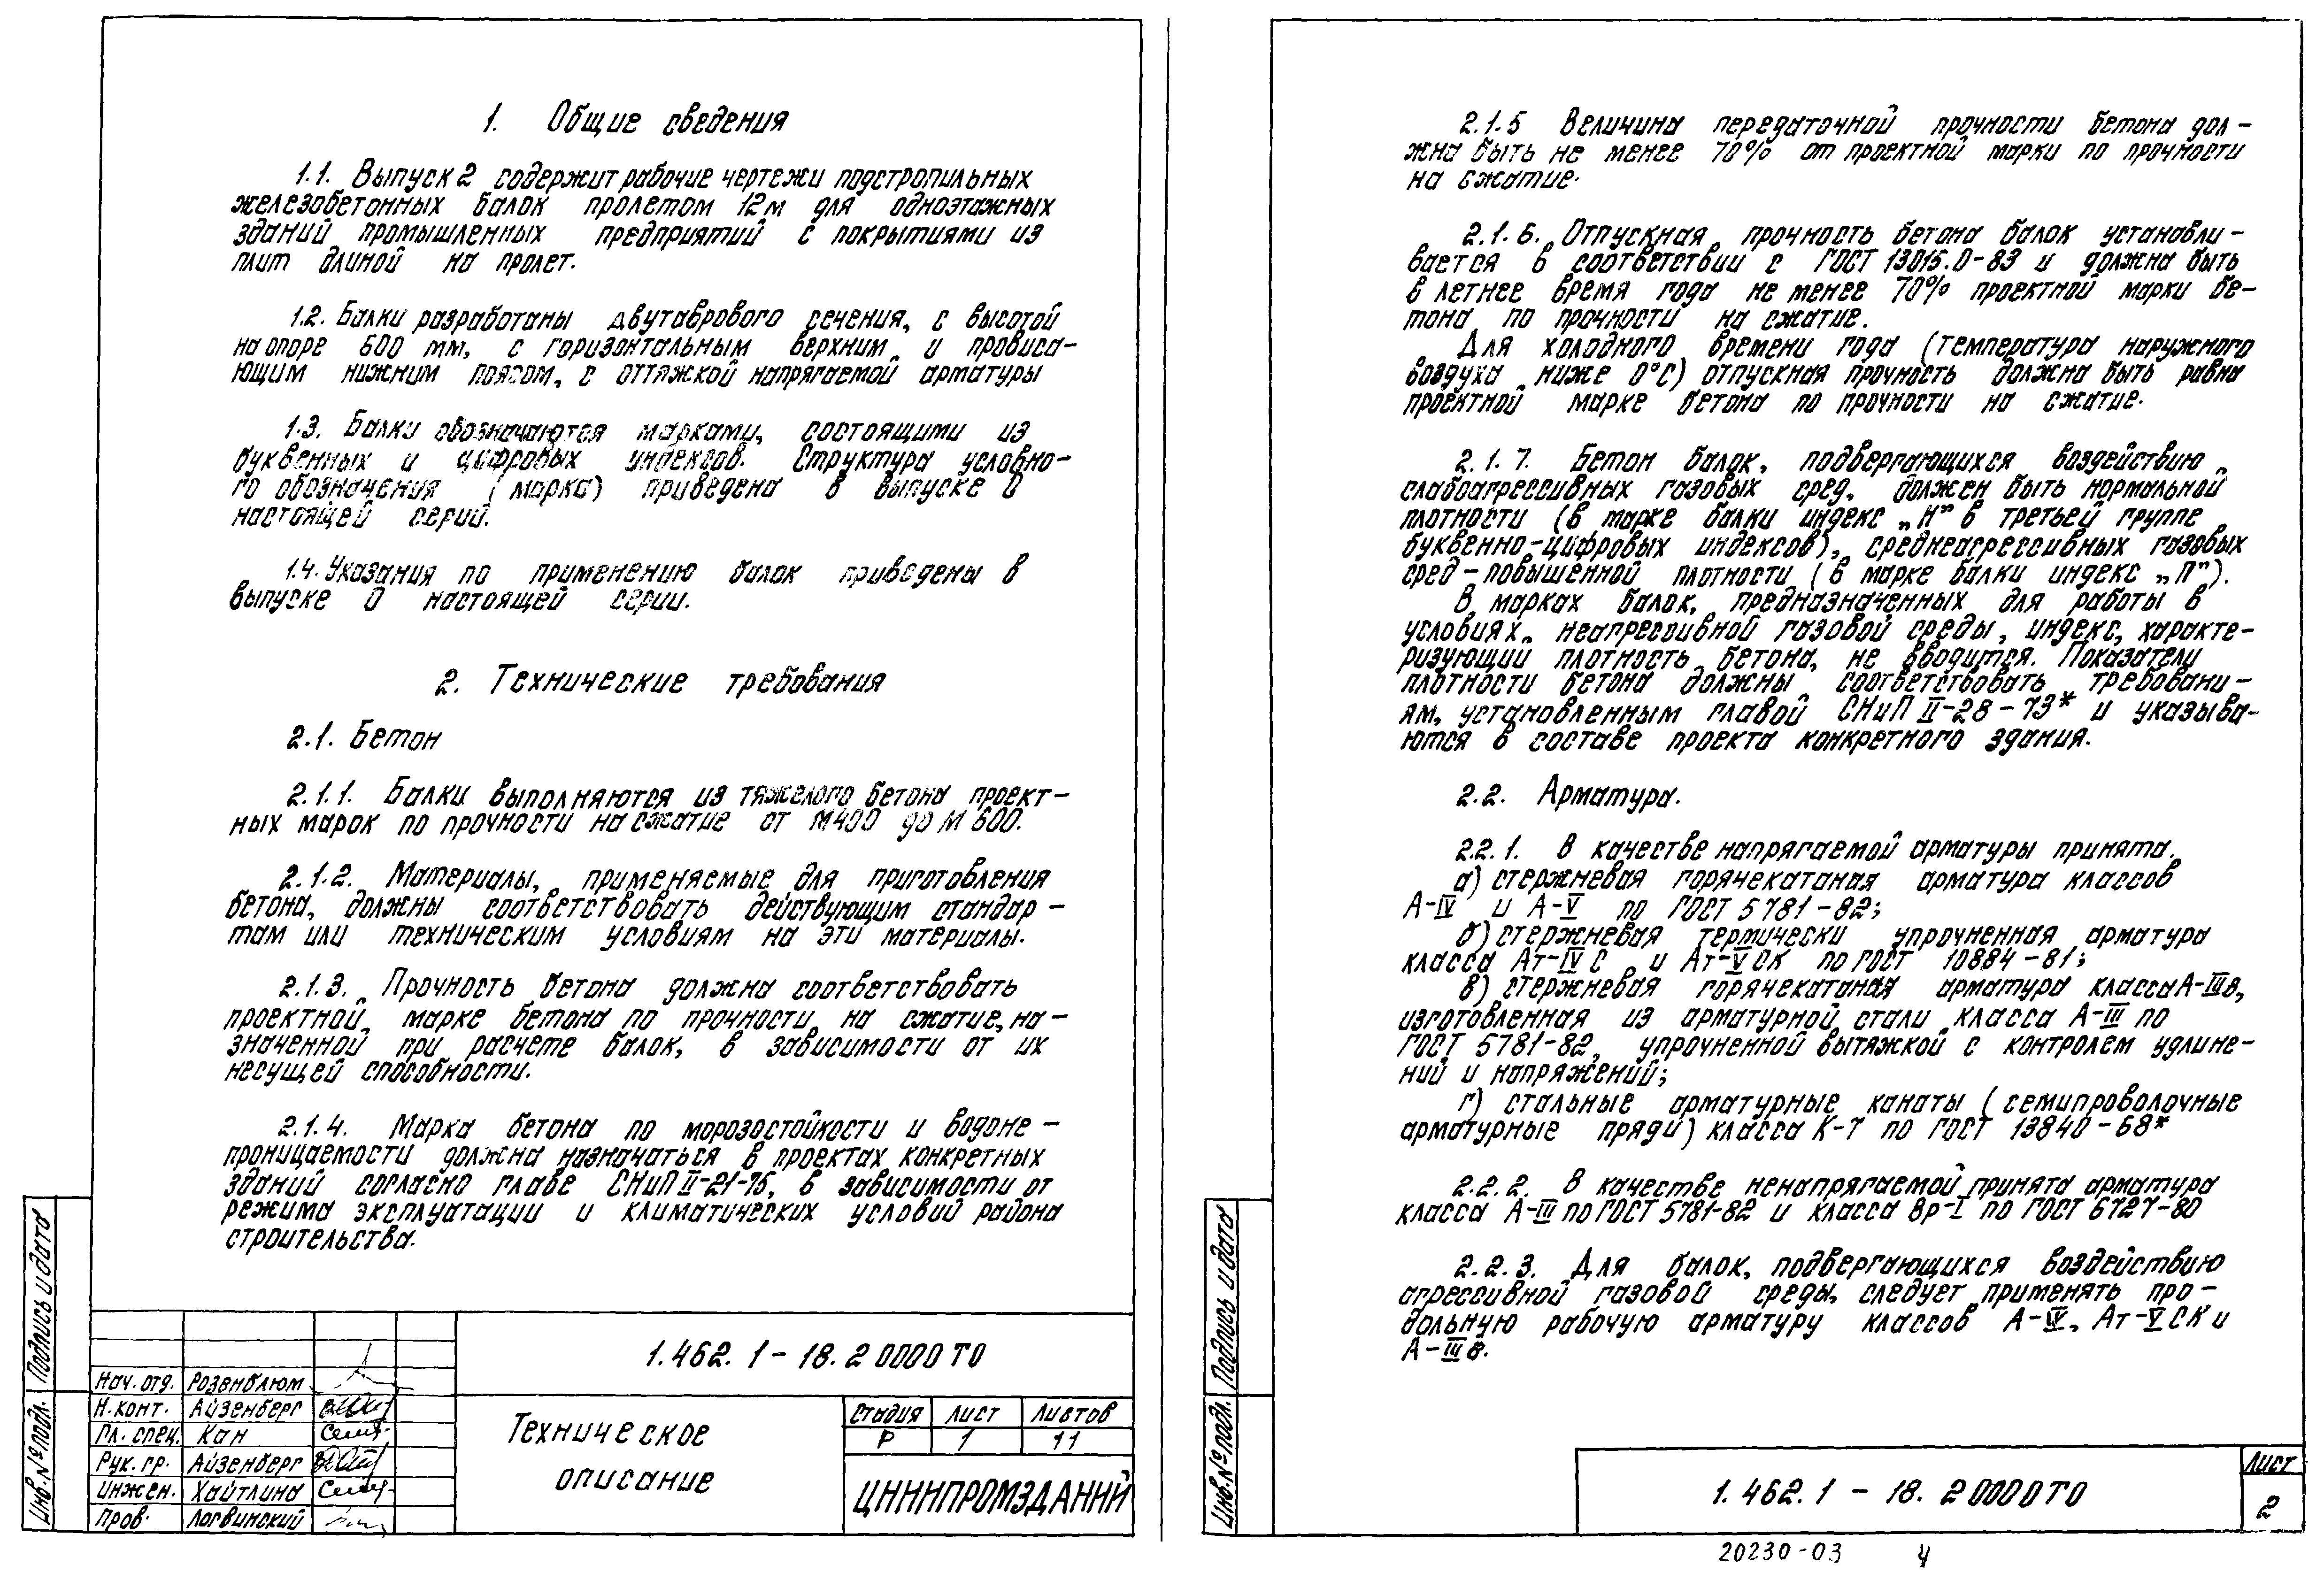 1. Общие сведения
1.1. Выпуск 2 содержит рабочие чертежи подстропильных
железобетонных балок пролетом 12м для одноэтажных
зданий промышленных предприятий с покрытиями из
плит длиной на пролет.
1.2. Балки разработаны двутаврового сечения, с высотой
на опоре 600 мм, с горизонтальным верхним и провиса-
ющим нижним поясом, с оттяжкой напрягаемой арматуры
1.3. Балки обозначаются марками, состоящими из
буквенных и цифровых индексов. Структура условно-
го обозначения (марка) приведена в выпуске 0
настоящей серии.
1.4. Указания по применению балок приведены в
выпуске 0 настоящей серии.
2. Технические требования
2.1. Бетон
2.1.1. Балки выполняются из тяжелого бетона проект-
ных марок по прочности на сжатие от М400 до М600.
2.1.2. Материалы, применяемые для приготовления
бетона, должны соответствовать действующим стандар-
там или техническим условиям на эти материалы.
2.1.3. Прочность бетона должна соответствовать
проектной марке бетона по прочности на сжатие, на-
значенной при расчете балок, в зависимости от их
несущей способности.
2.1.4. Марка бетона по морозостойкости и водоне-
проницаемости должна назначаться в проектах конкретных
зданий согласно главе СНиП II-21-75, в зависимости от
режима эксплуатации и климатических условий района
строительства.
Подпись и дата
Инв. № подл.
Нач. отд. Розенблюм
Н. конт. Айзенберг
Гл. спец. Кан
Рук. гр. Айзенберг
Инжен. Хайтлина
Пров. Логвинский
1.462.1-18.2 0000 ТО
Техническое
описание
Стадия Лист Листов
Р 1 11
ЦНИИПРОМЗДАНИЙ
2.1.5 Величина передаточной прочности бетона дол-
жна быть не менее 70% от проектной марки по прочности
на сжатие.
2.1.6. Отпускная прочность бетона балок устанавли-
вается в соответствии с ГОСТ 13015.0-83 и должна быть
в летнее время года не менее 70% проектной марки бе-
тона по прочности на сжатие.
Для холодного времени года (температура наружного
воздуха ниже 0°С) отпускная прочность должна быть равна
проектной марке бетона по прочности на сжатие.
2.1.7. Бетон балок, подвергающихся воздействию
слабоагрессивных газовых сред, должен быть нормальной
плотности (в марке балки индекс „Н" в третьей группе
буквенно-цифровых индексов), среднеагрессивных газовых
сред – повышенной плотности (в марке балки индекс „П").
В марках балок, предназначенных для работы в
условиях неагрессивной газовой среды, индекс, характе-
ризующий плотность бетона, не вводится. Показатели
плотности бетона должны соответствовать требовани-
ям, установленным главой СНиП II-28-73* и указыва-
ются в составе проекта конкретного здания.
2.2. Арматура.
2.2.1. В качестве напрягаемой арматуры принята.
а) стержневая горячекатаная арматура классов
А-IV и А-V по ГОСТ 5781-82;
б) стержневая термически упрочненная арматура
класса Ат-IVС и Ат-VСК по ГОСТ 10884-81;
в) стержневая горячекатаная арматура класса А-IIIв,
изготовленная из арматурной стали класса А-III по
ГОСТ 5781-82, упрочненной вытяжкой с контролем удлине-
ний и напряжений;
г) стальные арматурные канаты (семипроволочные
арматурные пряди) класса К-7 по ГОСТ 13840-68*
2.2.2. В качестве ненапрягаемой принята арматура
класса А-III по ГОСТ 5781-82 и класса Вр-I по ГОСТ 6727-80
2.2.3. Для балок, подвергающихся воздействию
агрессивной газовой среды, следует применять про-
дольную рабочую арматуру классов А-IV, Ат-VСК и
А-IIIв.
Подпись и дата
Инв. № подл.
1.462.1-18.2 0000 ТО
Лист
2
20230-03 4